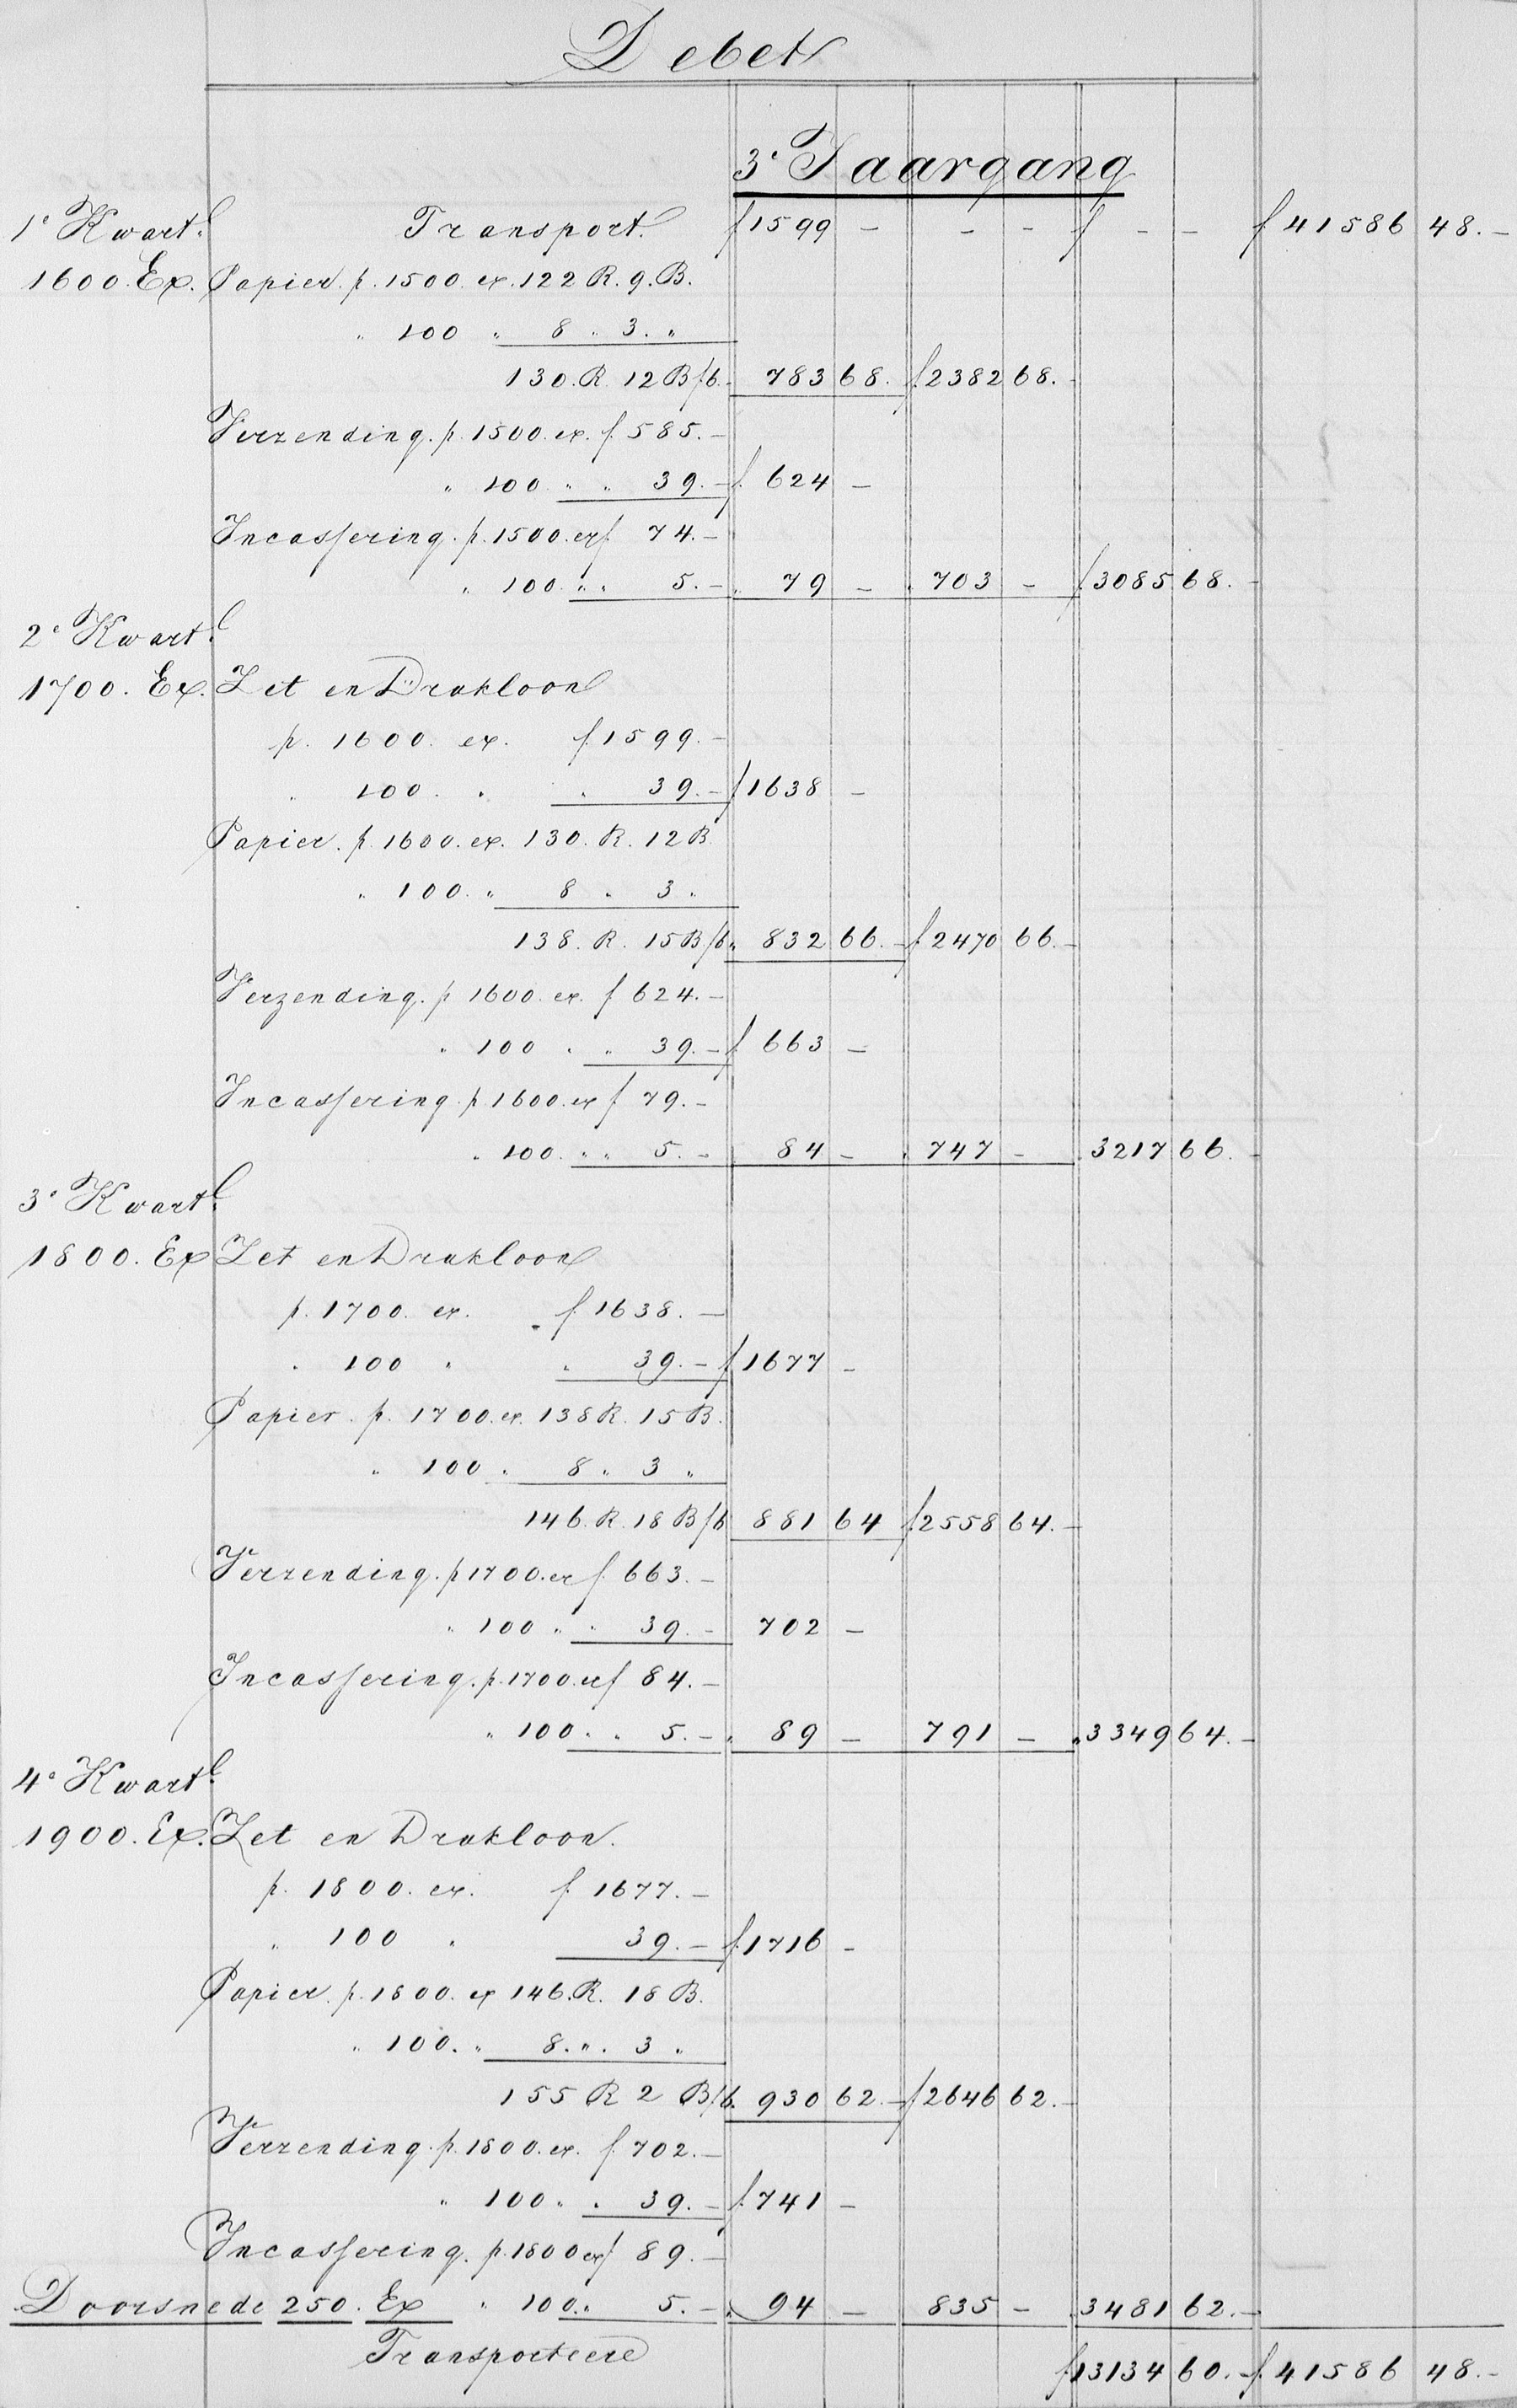 Debet
3e Jaargang
1e Kwartl. Transport. f 1599 - - - f - - f 41586 48. -
1600. Ex. Papier. p. 1500. ex. 122 R. 9. B.
" 100 " 8 " 3. "
130. R. 12 B f 6. - 783 68. f 2382 68. -
Verzending. p. 1500. ex. f. 585. -
" 100. " " 39. - f. 624 -
Incassering. p. 1500. ex f. 74. -
" 100. " " 5. - " 79 - " 703 - f. 3085 68. -
2e Kwartl.
1700. Ex. Zet en Drukloon
p. 1600. ex. f. 1599. -
" 100. " " 39. - f 1638 -
Papier. p. 1600. ex. 130. R. 12 B.
" 100. " 8 " 3 "
138. R. 15 B f 6 " 832 66. - f. 2470 66. -
Verzending. p. 1600. ex. f 624. -
" 100 " " 39. - f. 663 -
Incassering p. 1600. ex f. 79. -
" 100. " " 5. - " 84 - " 747 - " 3217 66. -
3e Kwartl.
1800. Ex Zet en Drukloon
p. 1700. ex. f. 1638. -
" 100 " " 39. - f 1677 -
Papier. p. 1700. ex. 138 R. 15 B.
" 100 " 8 " 3 "
146. R. 18 B f 6 881 64 f. 2558 64. -
Verzending. p. 1700. ex f. 663. -
" 100 " " 39. - 702 -
Incassering. p. 1700. ex f 84. -
" 100. " " 5. - " 89 - 791 - " 3349 64. -
4e Kwartl.
1900. Ex. Zet en Drukloon.
p. 1800. ex. f. 1677. -
" 100 " 39. - f. 1716 -
Papier. p. 1800. ex 146. R. 18 B.
" 100. " 8. " 3 "
155 R 2 B f 6. 930 62. - f 2646 62. -
Verzending. p. 1800. ex. f. 702. -
" 100. " " 39. - f. 741 -
Incassering. p. 1800 ex f 89. -
Doorsnede 250. Ex " 100. " 5. - " 94 - 835 - " 3481 62. -
Transporteere f. 13134 60. - f. 41586 48. -